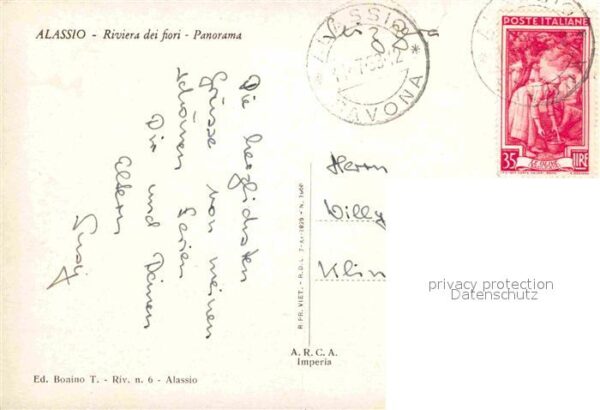 ALASSIO - Riviera dei fiori - Panorama
ALASSIO
SAVONA
POSTE ITALIANE
35 LIRE
Die herzlichsten
Grüsse von meinen
schönen Ferien
Dir und Deinen
Eltern
Susy
Herrn
Willy
Klin
privacy protection
Datenschutz
R. D. L. 7-XI-1925 - N.
A. R. C. A.
Imperia
Ed. Boaino T. - Riv. n. 6 - Alassio